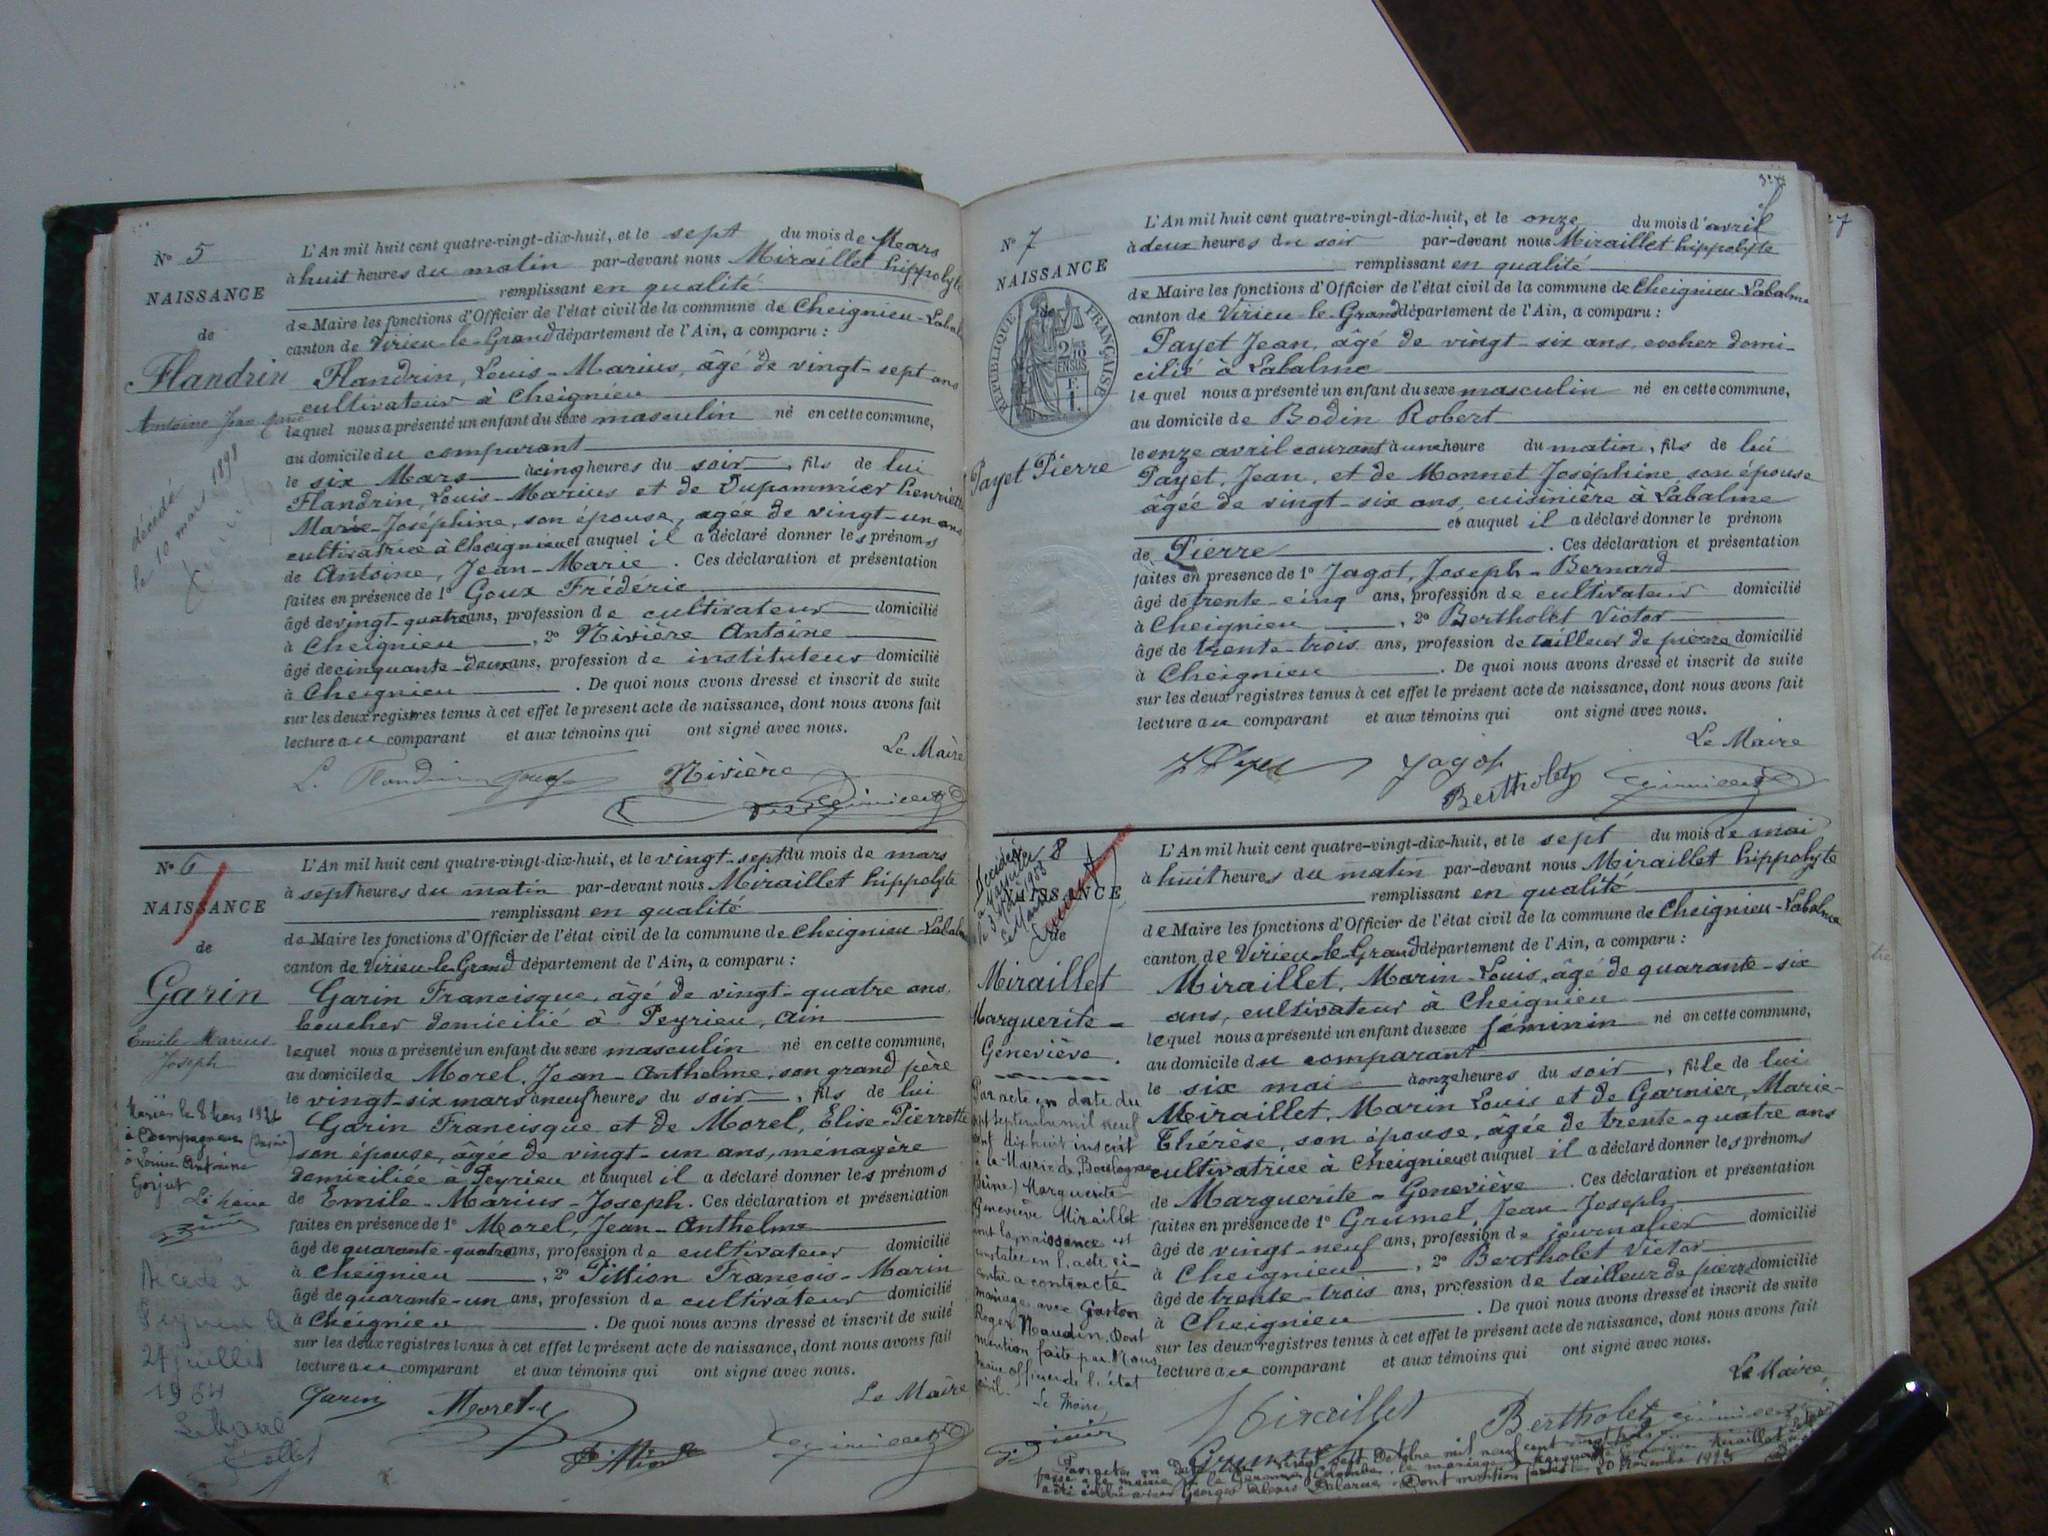 N° 5
NAISSANCE
de
Flandrin
Antoine Jean Marie
décédé
le 10 mars 1898
L'An mil huit cent quatre-vingt-dix-huit, et le sept du mois de Mars
à huit heures du matin par-devant nous Miraillet hippolyte
remplissant en qualité
de Maire les fonctions d'Officier de l'état civil de la commune de Cheignieu-Labal
canton de Virieu-le-Grand département de l'Ain, a comparu :
Flandrin, Louis-Marius, âgé de vingt-sept ans
cultivateur à Cheignieu
lequel nous a présenté un enfant du sexe masculin né en cette commune,
au domicile du comparant
le six Mars à cinq heures du soir, fils de lui
Flandrin, Louis-Marius et de Dupommier henriette
Marie-Joséphine, son épouse, agée de vingt-un ans
cultivatrice à Cheignieu et auquel il a déclaré donner les prénoms
de Antoine, Jean-Marie. Ces déclaration et présentation
faites en présence de 1° Goux Frédéric
âgé de vingt-quatre ans, profession de cultivateur domicilié
à Cheignieu, 2° Rivière Antoine
âgé de cinquante-deux ans, profession de instituteur domicilié
à Cheignieu. De quoi nous avons dressé et inscrit de suite
sur les deux registres tenus à cet effet le présent acte de naissance, dont nous avons fait
lecture au comparant et aux témoins qui ont signé avec nous.
Le Maire
L. Flandrin Goux Rivière
N° 6
NAISSANCE
de
Garin
Emile Marius
Joseph
Marié le 8 1926
à Champagneux
à Louise Antoinine
Gorjut
Le Maire
Décédé à
Peyrieu le
27 juillet
1964
Le Maire
L'An mil huit cent quatre-vingt-dix-huit, et le vingt-sept du mois de mars
à sept heures du matin par-devant nous Miraillet hippolyte
remplissant en qualité
de Maire les fonctions d'Officier de l'état civil de la commune de Cheignieu-Labalme
canton de Virieu-le-Grand département de l'Ain, a comparu :
Garin Francisque, âgé de vingt-quatre ans,
boucher domicilié à Peyrieu, Ain
lequel nous a présenté un enfant du sexe masculin né en cette commune,
au domicile de Morel, Jean-Anthelme, son grand père
le vingt-six mars à neuf heures du soir, fils de lui
Garin Francisque et de Morel, Elise-Pierrette
son épouse, âgée de vingt-un ans, ménagère
domiciliée à Peyrieu et auquel il a déclaré donner les prénoms
de Emile-Marius-Joseph. Ces déclaration et présentation
faites en présence de 1° Morel, Jean-Anthelme
âgé de quarante-quatre ans, profession de cultivateur domicilié
à Cheignieu, 2° Pittion François-Marin
âgé de quarante-un ans, profession de cultivateur domicilié
à Cheignieu. De quoi nous avons dressé et inscrit de suite
sur les deux registres tenus à cet effet le présent acte de naissance, dont nous avons fait
lecture au comparant et aux témoins qui ont signé avec nous.
Le Maire
Garin Morel
N° 7
NAISSANCE
de
RÉPUBLIQUE FRANÇAISE
Payet Pierre
L'An mil huit cent quatre-vingt-dix-huit, et le onze du mois d'avril
à deux heures du soir par-devant nous Miraillet hippolyte
remplissant en qualité
de Maire les fonctions d'Officier de l'état civil de la commune de Cheignieu-Labalme
canton de Virieu-le-Grand département de l'Ain, a comparu :
Payet Jean, âgé de vingt-six ans, cocher domi-
cilié à Labalme
lequel nous a présenté un enfant du sexe masculin né en cette commune,
au domicile de Bodin Robert
le onze avril courant à une heure du matin, fils de lui
Payet, Jean, et de Monnet Joséphine, son épouse
âgée de vingt-six ans, cuisinière à Labalme
et auquel il a déclaré donner le prénom
de Pierre. Ces déclaration et présentation
faites en présence de 1° Jagot, Joseph-Bernard
âgé de trente-cinq ans, profession de cultivateur domicilié
à Cheignieu, 2° Bertholet Victor
âgé de trente-trois ans, profession de tailleur de pierre domicilié
à Cheignieu. De quoi nous avons dressé et inscrit de suite
sur les deux registres tenus à cet effet le présent acte de naissance, dont nous avons fait
lecture au comparant et aux témoins qui ont signé avec nous.
Le Maire
Jagot
Bertholet
8
NAISSANCE
de
Miraillet
Marguerite-
Geneviève.
Par acte en date du
sept septembre mil neuf
cent dix huit inscrit
à la Mairie de Boulogne
(Seine) Marguerite
Geneviève Miraillet
dont la naissance est
constatée en l'acte ci-
contre a contracté
mariage avec Gaston
Roger Naudin. Dont
mention faite par Nous
maire officier de l'état
civil.
Le Maire
L'An mil huit cent quatre-vingt-dix-huit, et le sept du mois de mai
à huit heures du matin par-devant nous Miraillet hippolyte
remplissant en qualité
de Maire les fonctions d'Officier de l'état civil de la commune de Cheignieu-Labalme
canton de Virieu-le-Grand département de l'Ain, a comparu :
Miraillet, Marin-Louis, âgé de quarante-six
ans, cultivateur à Cheignieu
lequel nous a présenté un enfant du sexe féminin né en cette commune,
au domicile du comparant
le six mai à onze heures du soir, fille de lui
Miraillet, Marin Louis et de Garnier, Marie-
Thérèse, son épouse, âgée de trente-quatre ans
cultivatrice à Cheignieu et auquel il a déclaré donner les prénoms
de Marguerite-Geneviève. Ces déclaration et présentation
faites en présence de 1° Grumel, Jean Joseph
âgé de vingt-neuf ans, profession de journalier domicilié
à Cheignieu, 2° Bertholet Victor
âgé de trente-trois ans, profession de tailleur de pierre domicilié
à Cheignieu. De quoi nous avons dressé et inscrit de suite
sur les deux registres tenus à cet effet le présent acte de naissance, dont nous avons fait
lecture au comparant et aux témoins qui ont signé avec nous.
Le Maire,
Miraillet Bertholet
Grumel
Par acte en date du vingt sept Octobre mil neuf cent vingt trois
passé à la mairie de la Garenne-Colombes, le mariage de Marguerite Geneviève Miraillet
a été célébré avec Georges Alexis Delarue. Dont mention faite le 20 Novembre 1923